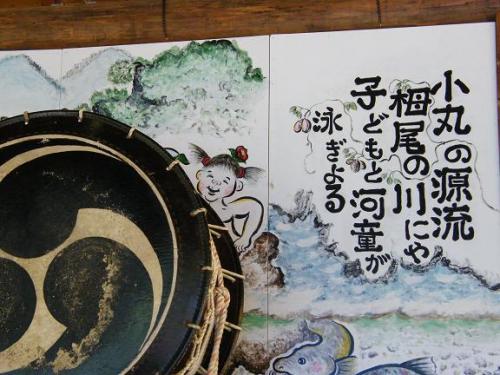 小丸の源流
栂尾の川にや
子どもと河童が
泳ぎよる